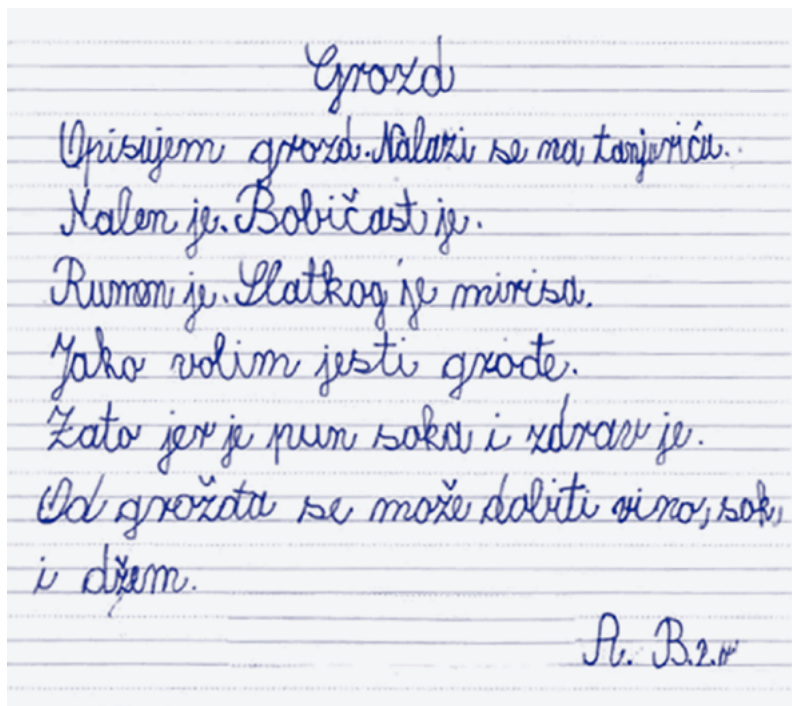 Grozd
Opisujem grozd. Nalazi se na tanjuriću.
Malen je. Bobičast je.
Rumen je. Slatkog je mirisa.
Jako volim jesti grođe.
Zato jer je pun soka i zdrav je.
Od grožđa se može dobiti vino, sok,
i džem.
A. B. 2.